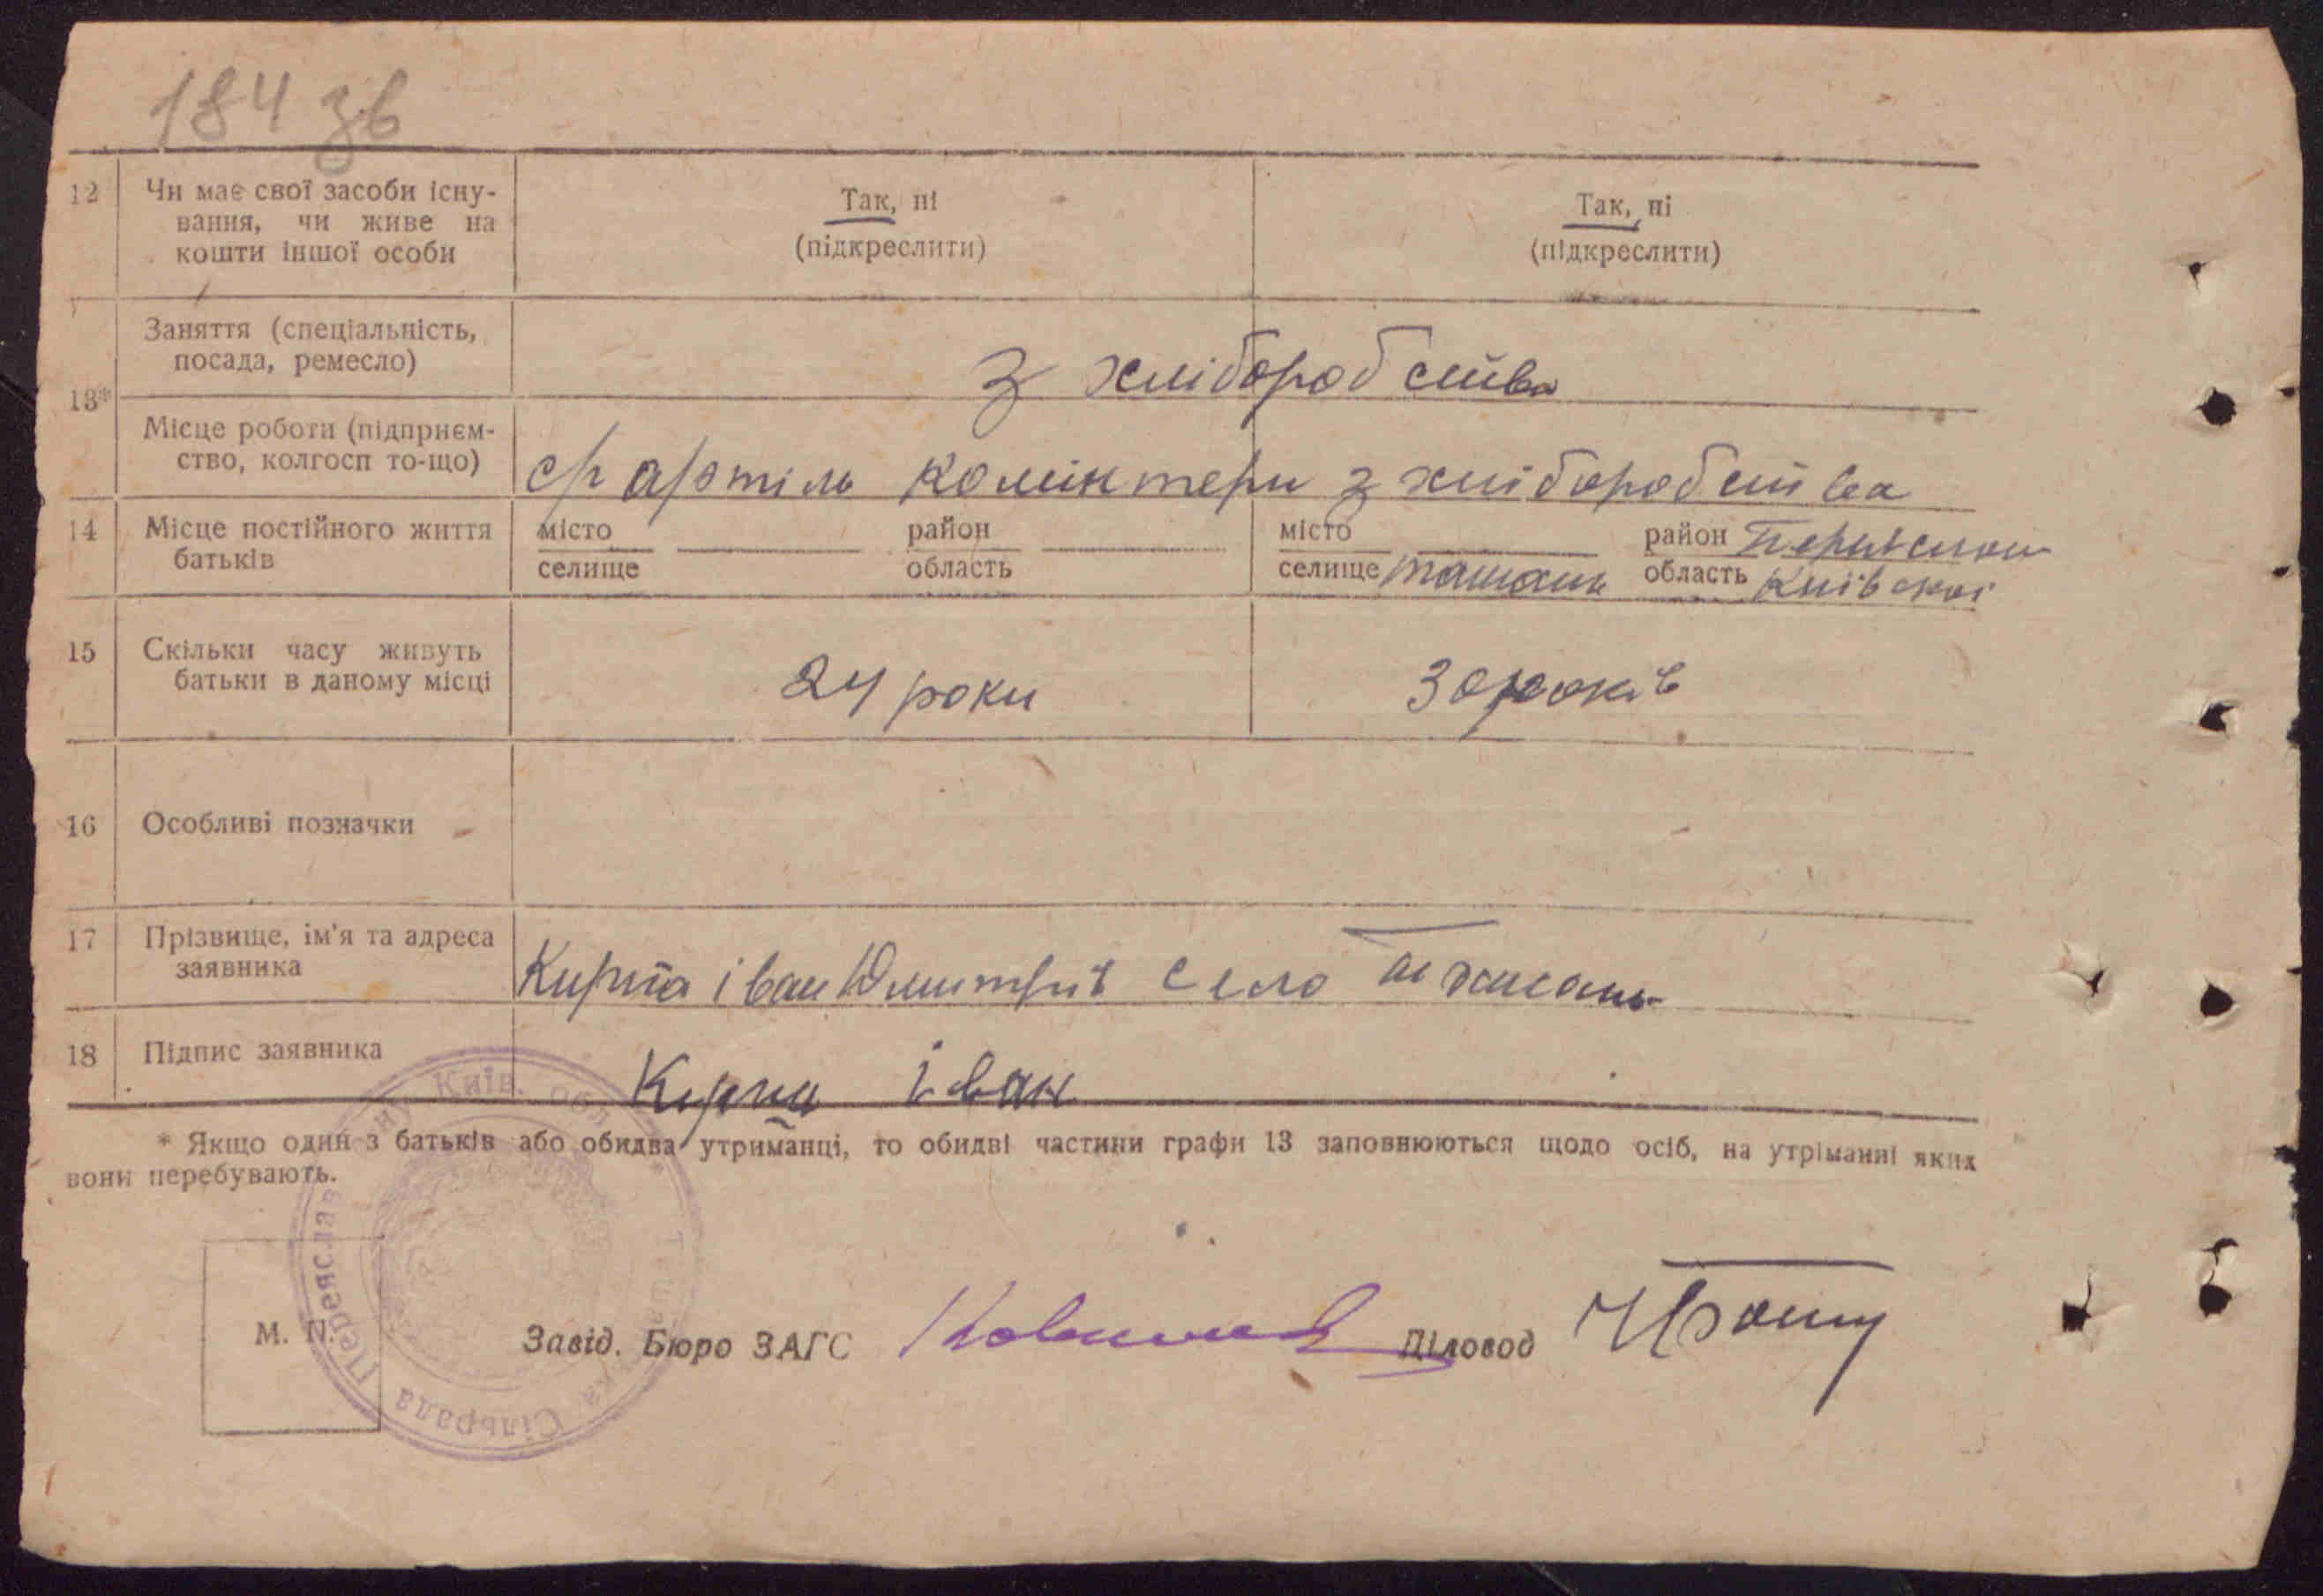 184 зв
12 Чи має свої засоби існу-
вання, чи живе на
кошти іншої особи
Так, ні
(підкреслити)
Так, ні
(підкреслити)
13*
Заняття (спеціальність,
посада, ремесло)
з хліборобства
Місце роботи (підприєм-
ство, колгосп то-що)
артіль комінтерн з хліборобства
14 Місце постійного життя
батьків
місто
селище
район
область
місто
селище ташань
район
область Київскої
15 Скільки часу живуть
батьки в даному місці
24 роки
30 років
16 Особливі позначки
17 Прізвище, ім'я та адреса
заявника
Кирпа іван Юмитрів село ташань
18 Підпис заявника
Кирпа іван
* Якщо один з батьків або обидва утриманці, то обидві частини графи 13 заповнюються щодо осіб, на утріманні яких
вони перебувають.
М. П.
Завід. Бюро ЗАГС
Діловод
Київ. обл.
Переяслав
Сільрада